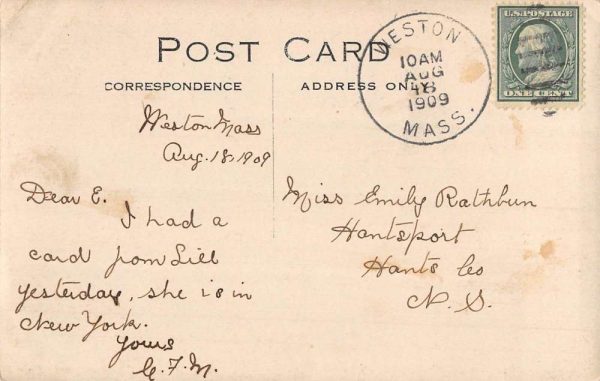 POST CARD
CORRESPONDENCE
ADDRESS ONLY
WESTON
10AM
AUG
18
1909
MASS.
U.S. POSTAGE
ONE CENT
Weston Mass
Aug. 18, 1909
Dear E.
I had a
card from Lill
yesterday, she is in
New York.
Yours
G. F. M.
Miss Emily Rathbun
Hantsport
Hants Co
N. S.